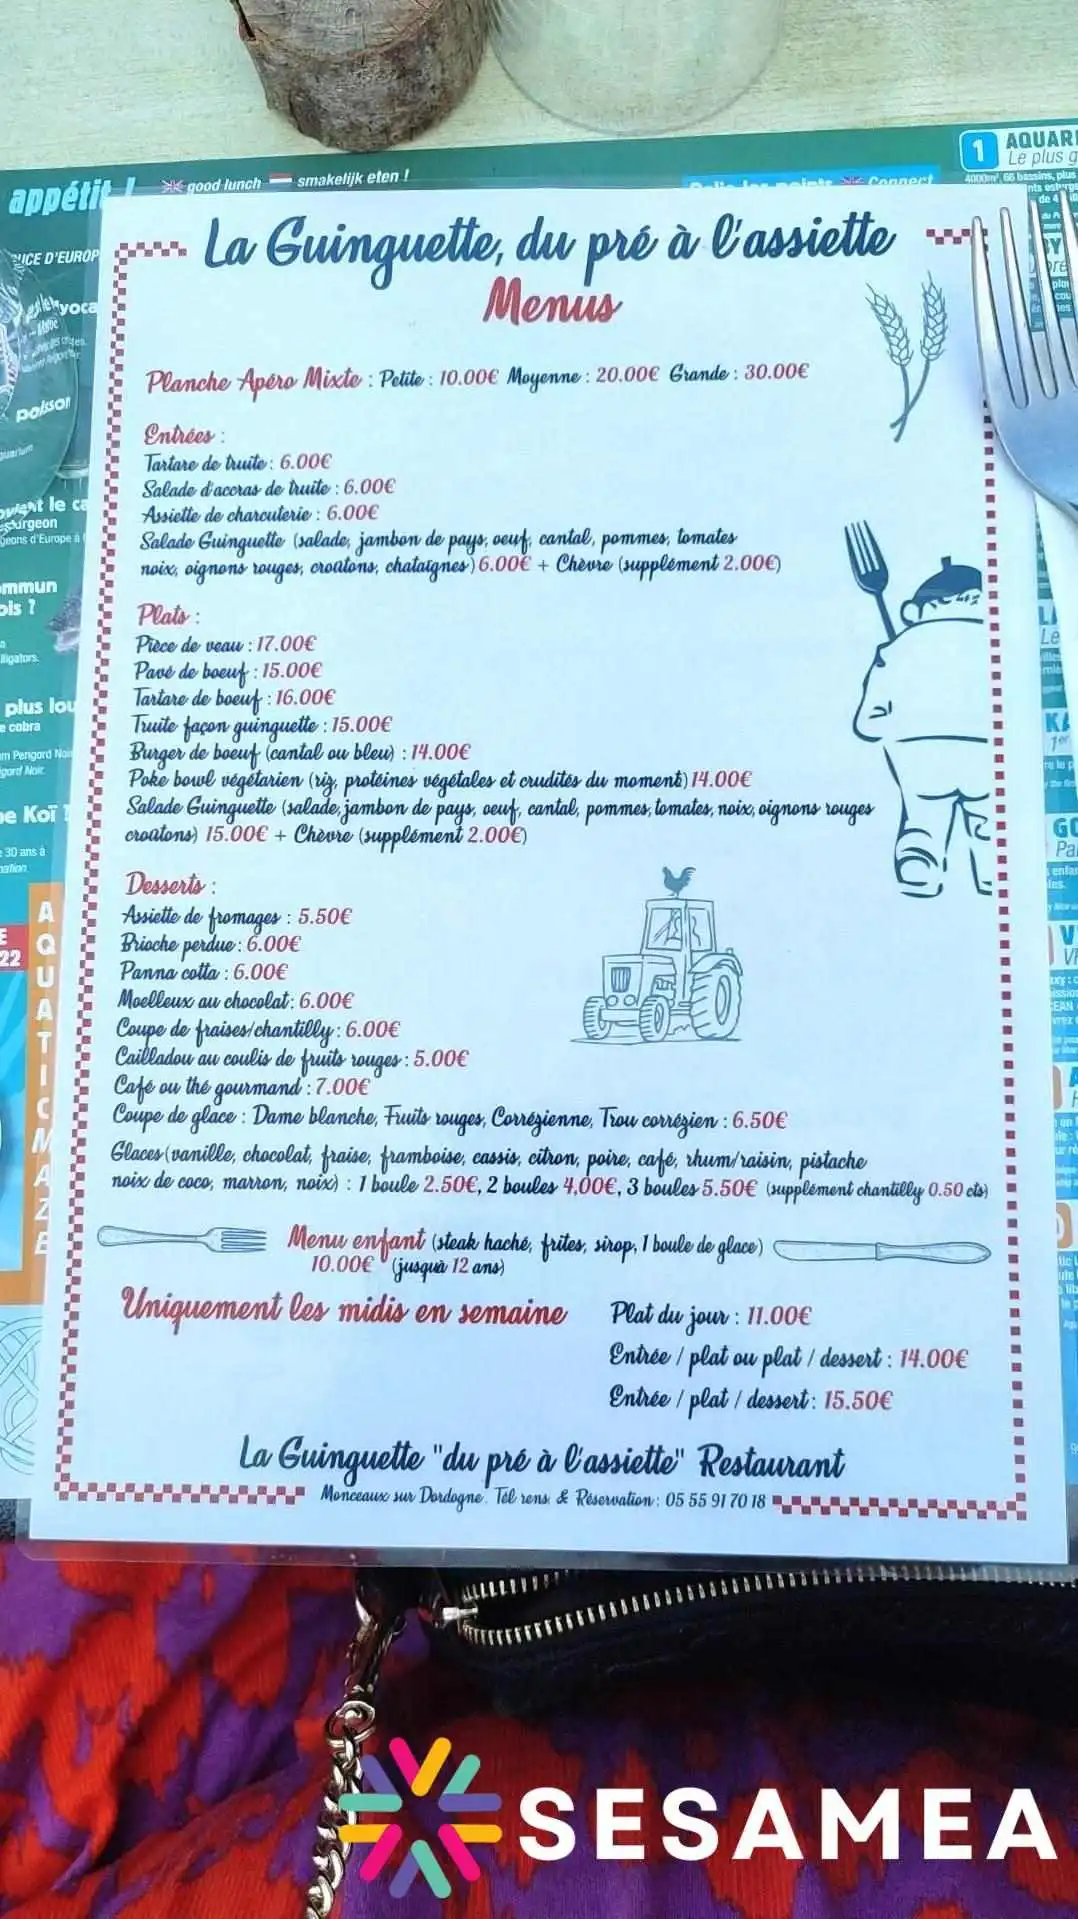 appétit !
good lunch
smakelijk eten !
1
AQUARI
Le plus g
La Guinguette, du pré à l'assiette
Menus
Planche Apéro Mixte : Petite : 10.00€ Moyenne : 20.00€ Grande : 30.00€
Entrées :
Tartare de truite : 6.00€
Salade d'accras de truite : 6.00€
Assiette de charcuterie : 6.00€
Salade Guinguette (salade, jambon de pays, oeuf, cantal, pommes, tomates
noix, oignons rouges, croutons, chataignes) 6.00€ + Chèvre (supplément 2.00€)
Plats :
Pièce de veau : 17.00€
Pavé de boeuf : 15.00€
Tartare de boeuf : 16.00€
Truite façon guinguette : 15.00€
Burger de boeuf (cantal ou bleu) : 14.00€
Poke bowl végétarien (riz, protéines végétales et crudités du moment) 14.00€
Salade Guinguette (salade, jambon de pays, oeuf, cantal, pommes, tomates, noix, oignons rouges
croutons) 15.00€ + Chèvre (supplément 2.00€)
Desserts :
Assiette de fromages : 5.50€
Brioche perdue : 6.00€
Panna cotta : 6.00€
Moelleux au chocolat : 6.00€
Coupe de fraises/chantilly : 6.00€
Cailladou au coulis de fruits rouges : 5.00€
Café ou thé gourmand : 7.00€
Coupe de glace : Dame blanche, Fruits rouges, Corrézienne, Trou corrézien : 6.50€
Glaces (vanille, chocolat, fraise, framboise, cassis, citron, poire, café, rhum/raisin, pistache
noix de coco, marron, noix) : 1 boule 2.50€, 2 boules 4,00€, 3 boules 5.50€ (supplément chantilly 0.50 cts)
Menu enfant (steak haché, frites, sirop, 1 boule de glace)
10.00€ (jusquà 12 ans)
Uniquement les midis en semaine
Plat du jour : 11.00€
Entrée / plat ou plat / dessert : 14.00€
Entrée / plat / dessert : 15.50€
La Guinguette "du pré à l'assiette" Restaurant
Monceaux sur Dordogne. Tél rens. & Réservation : 05 55 91 70 18
AQUATIC MAZE
SESAMEA